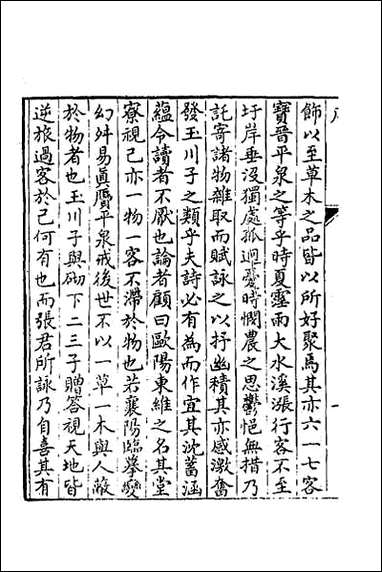 飾以至草木之品皆以所好聚焉其亦六一七客
寶晉平泉之等乎時夏靈雨大水溪漲行客不至
圩岸垂没獨處孤迥憂時憫農之思鬱悒無措乃
託寄諸物雜取而賦詠之以抒幽積其亦感激奮
發玉川子之類乎夫詩必有為而作宜其沈蓄涵
蘊令讀者不厭也論者顧曰歐陽東維之名其堂
寮視己亦一物一客不滯於物也若襄陽臨摹變
幻舛易真贗平泉戒後世不以一草一木與人蔽
於物者也玉川子與砌下二三子贈答視天地皆
逆旅過客於己何有也而張君所詠乃自喜其有